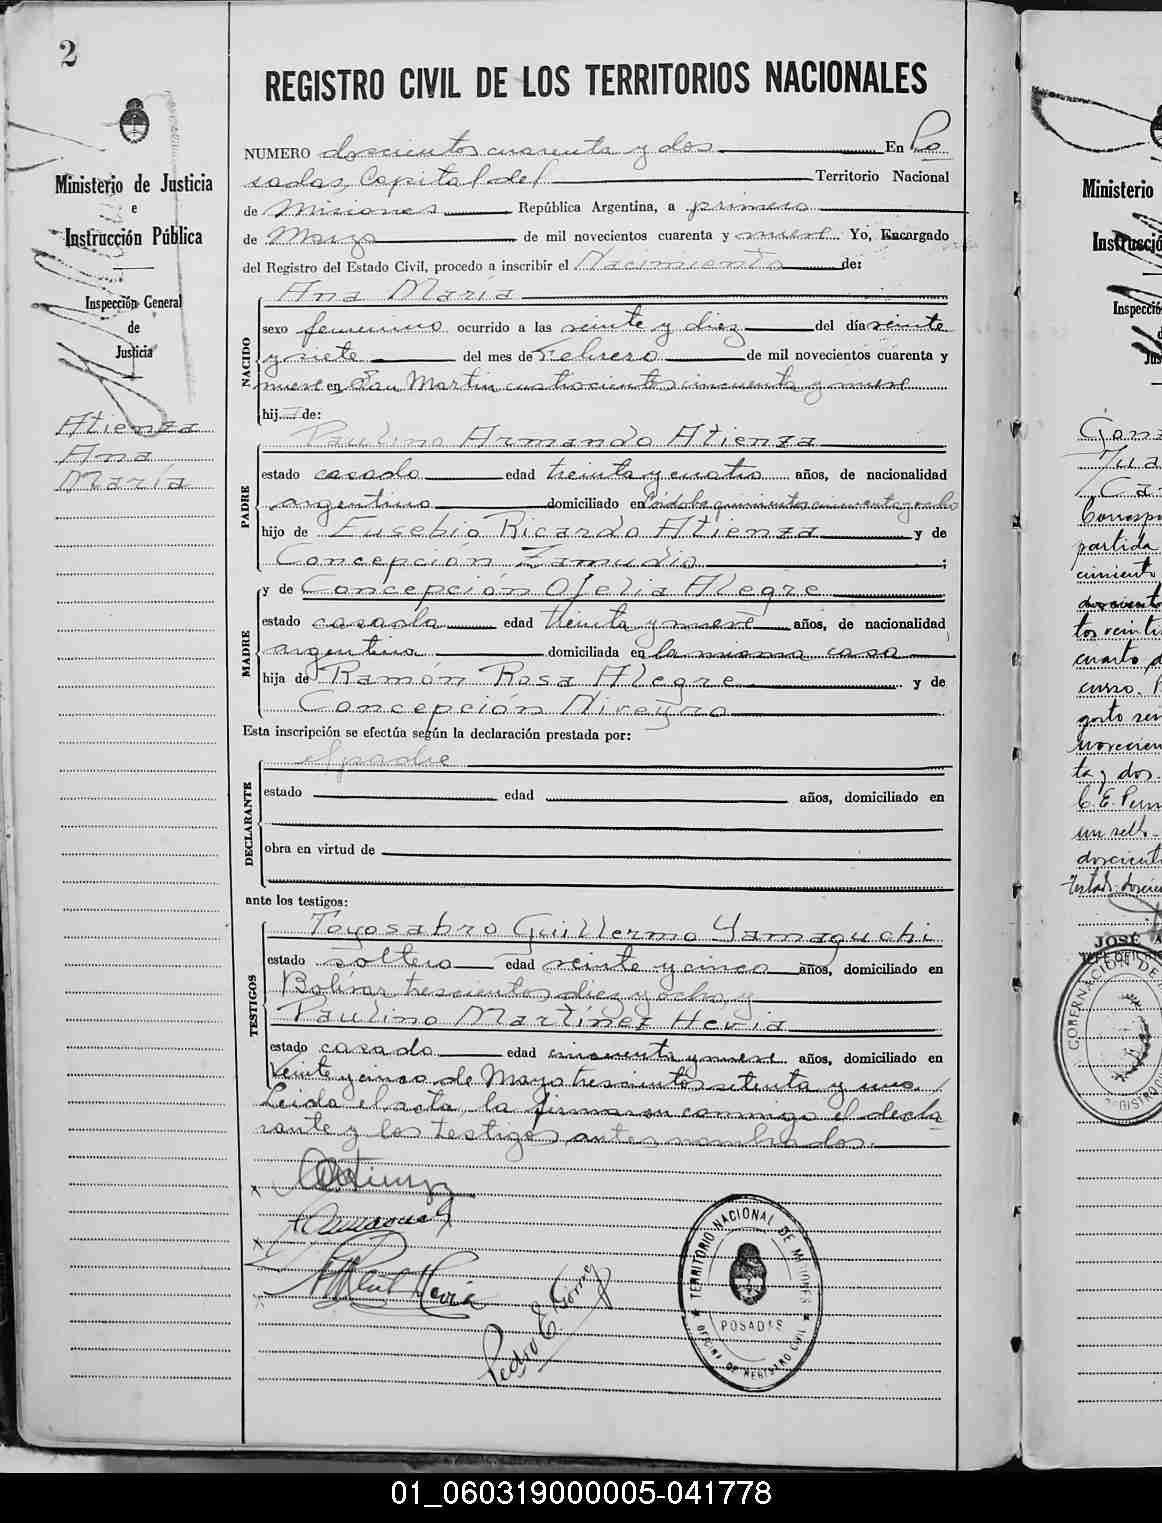 2
REGISTRO CIVIL DE LOS TERRITORIOS NACIONALES
Ministerio de Justicia
e
Instrucción Pública
Inspección General
de
Justicia
Atienza
Ana
María
NUMERO doscientos cuarenta y dos En Po
sadas, Capital del Territorio Nacional
de Misiones República Argentina, a primero
de Marzo de mil novecientos cuarenta y nueve Yo, Encargado
del Registro del Estado Civil, procedo a inscribir el Nacimiento de:
NACIDO
Ana María
sexo femenino ocurrido a las veinte y diez del día veinte
y siete del mes de Febrero de mil novecientos cuarenta y
nueve en San Martín cuatrocientos cincuenta y nueve
hij de:
PADRE
Paulino Armando Atienza
estado casado edad treinta y cuatro años, de nacionalidad
argentino domiciliado en Córdoba quinientos cincuenta y ocho
hijo de Eusebio Ricardo Atienza y de
Concepción Zamudio ;
MADRE
y de Concepción Ofelia Alegre
estado casada edad treinta y nueve años, de nacionalidad
argentina domiciliada en la misma casa
hija de Ramón Rosa Alegre y de
Concepción Niveyro
Esta inscripción se efectúa según la declaración prestada por:
DECLARANTE
el padre
estado edad años, domiciliado en
obra en virtud de
ante los testigos:
TESTIGOS
Toyosabro Guillermo Yamaguchi
estado soltero edad veinte y cinco años, domiciliado en
Bolívar trescientos diez y ocho, y
Paulino Martínez Hevia
estado casado edad cincuenta y nueve años, domiciliado en
Veinte y cinco de Mayo trescientos setenta y uno.
Leida el acta, la firmaron conmigo el decla
rante y los testigos antes nombrados.
Atienza
Hevia
Pedro E. Gomez
TERRITORIO NACIONAL DE MISIONES
POSADAS
OFICINA DE REGISTRO CIVIL
Ministerio
Instrucció
Inspecció
Jus
Corresp
partida
cimiento
tos veinti
cuarto d
curso.
ta y dos.
un sello.
JOSÉ A
GOBERNACION DE
REGISTRO
01_060319000005-041778